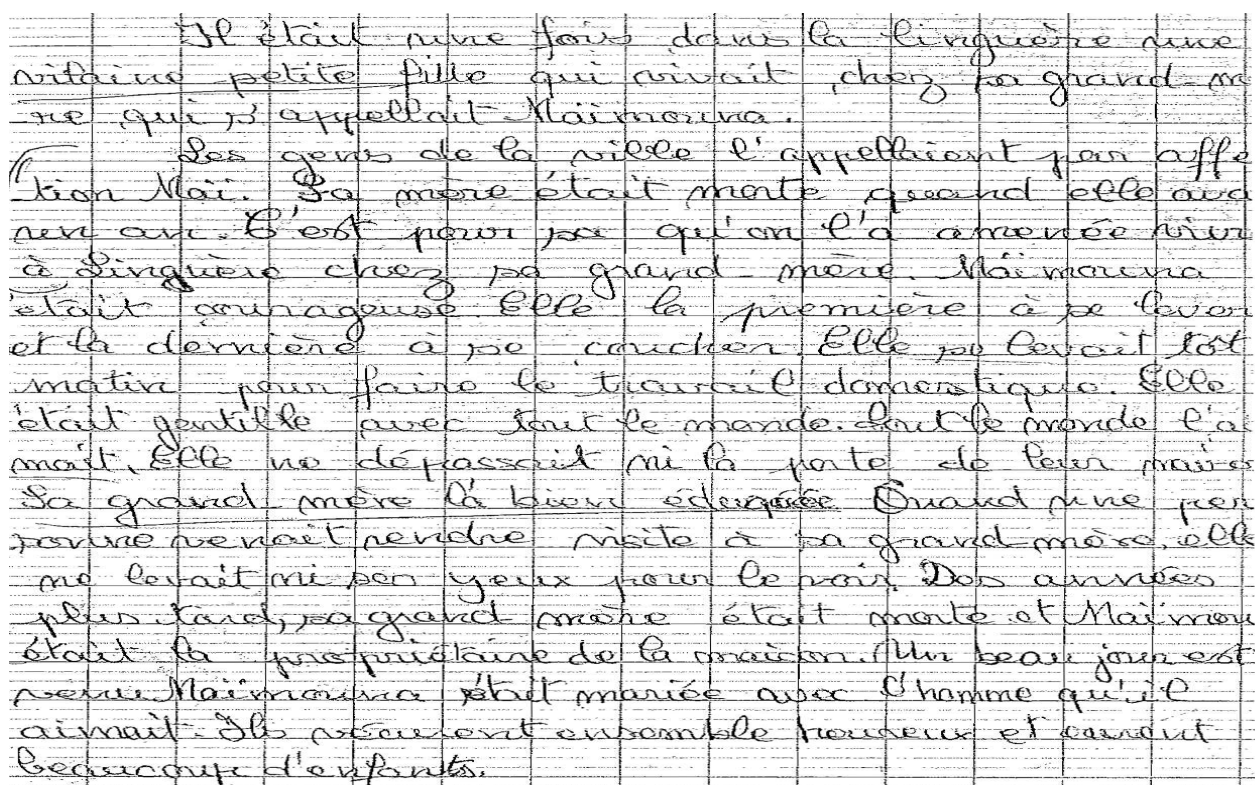 Il était une fois dans la linguère une
vilaine petite fille qui vivait chez sa grand-mè
re qui s'appellait Maïmouna.
Les gens de la ville l'appellaient par affe
tion Maï. Sa mère était morte quand elle ava
un an. C'est pour sa qu'on l'a amenée vivr
à Linguère chez sa grand-mère. Maïmouna
était courageuse. Elle la première à se lever
et la dernière à se coucher. Elle se levait tôt
matin pour faire le travail domestique. Elle
était gentille avec tout le monde. Tout le monde l'ai
mait. Elle ne dépassait ni la porte de leur maiso
Sa grand-mère l'à bien éduquée Quand une per
sonne venait rendre visite à sa grand-mère, elle
ne levait ni ses yeux pour le voir. Des années
plus tard, sa grand mère était morte et Maïmou
était la propriétaire de la maison. Un beau jour est
venu Maïmouna était mariée avec l'homme qu'il
aimait. Ils vécurent ensemble heureux et eurent
beaucoup d'enfants.